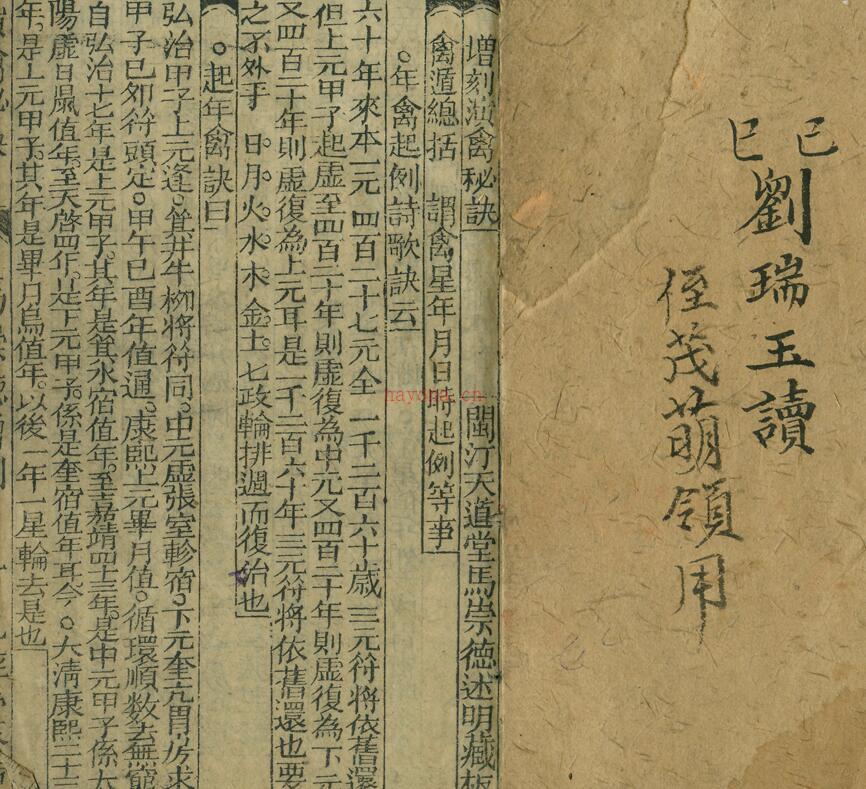 己巳
劉瑞玉讀
侄茂萌領用
增刻演禽秘訣 閩汀天道堂馬崇德述明藏板
禽遁總括 謂禽星年月日時起例等事
○年禽起例詩歌訣云
六十年來本一元 四百二十七元全 一千二百六十歲 三元符將依舊還
但上元甲子起虛至四百二十年則虛復為中元又四百二十年則虛復為下元
又四百二十年則虛復為上元耳是一千二百六十年三元符將依舊還也要
之不外乎 日。月。火。水。木。金。土。七政輪排週而復始也
○起年禽訣曰
弘治甲子上元逢。箕井牛柳將符同。中元虛張室軫宿。下元奎亢胃房求
甲子己卯符頭定。甲午己酉年值通。康熙上元畢月值。循環順数去無窮
自弘治十七年是上元甲子。其年是箕水宿值年。至嘉靖四十三年。是中元甲子係太
陽虛日鼠值年。至天啓四年。是下元甲子。係是奎宿值年耳今○大清康熙二十三
年。是上元甲子。其年是畢月烏值年。以後一年一星輪去是也
hayoma.cn